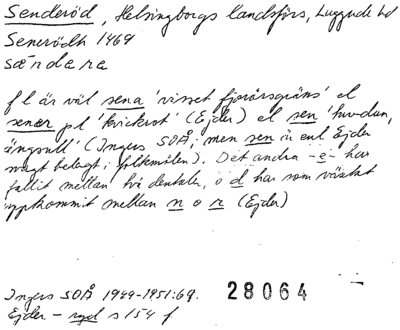 Senderöd, Helsingborgs landsförs, Luggude hd
Senerödh 1469
sændərə
fl är väl sena 'visset fjorårsgräs' el
senær pl 'kvickrot' (Ejder) el sen
ängsull' (Ingers SOÅ; men sen är enl Ejder
svagt belagt i folkmålen). Det andra -e- har
fallit mellan två dentaler, o d har som växt
uppkommit mellan n o r (Ejder)
Ingers SOÅ 1949-1951:69.
Ejder - ryd s 154 f
28064